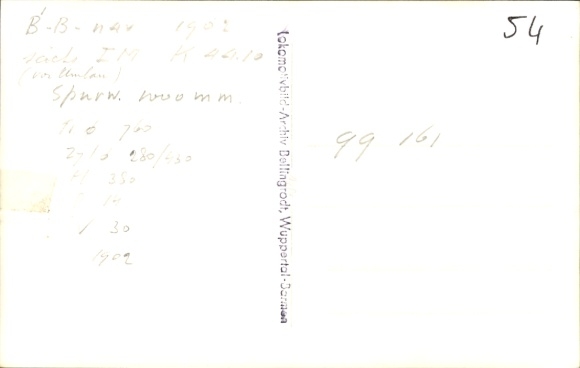 B'-B- n4v 1902
sächs I M K 44.10
(vor Umbau)
Spurw. 1000 mm.
Tr d 760
Zyl d 280/430
H 380
14
V 30
1902
Lokomotivbild-Archiv Bellingrodt, Wuppertal-Barmen
54
99 161